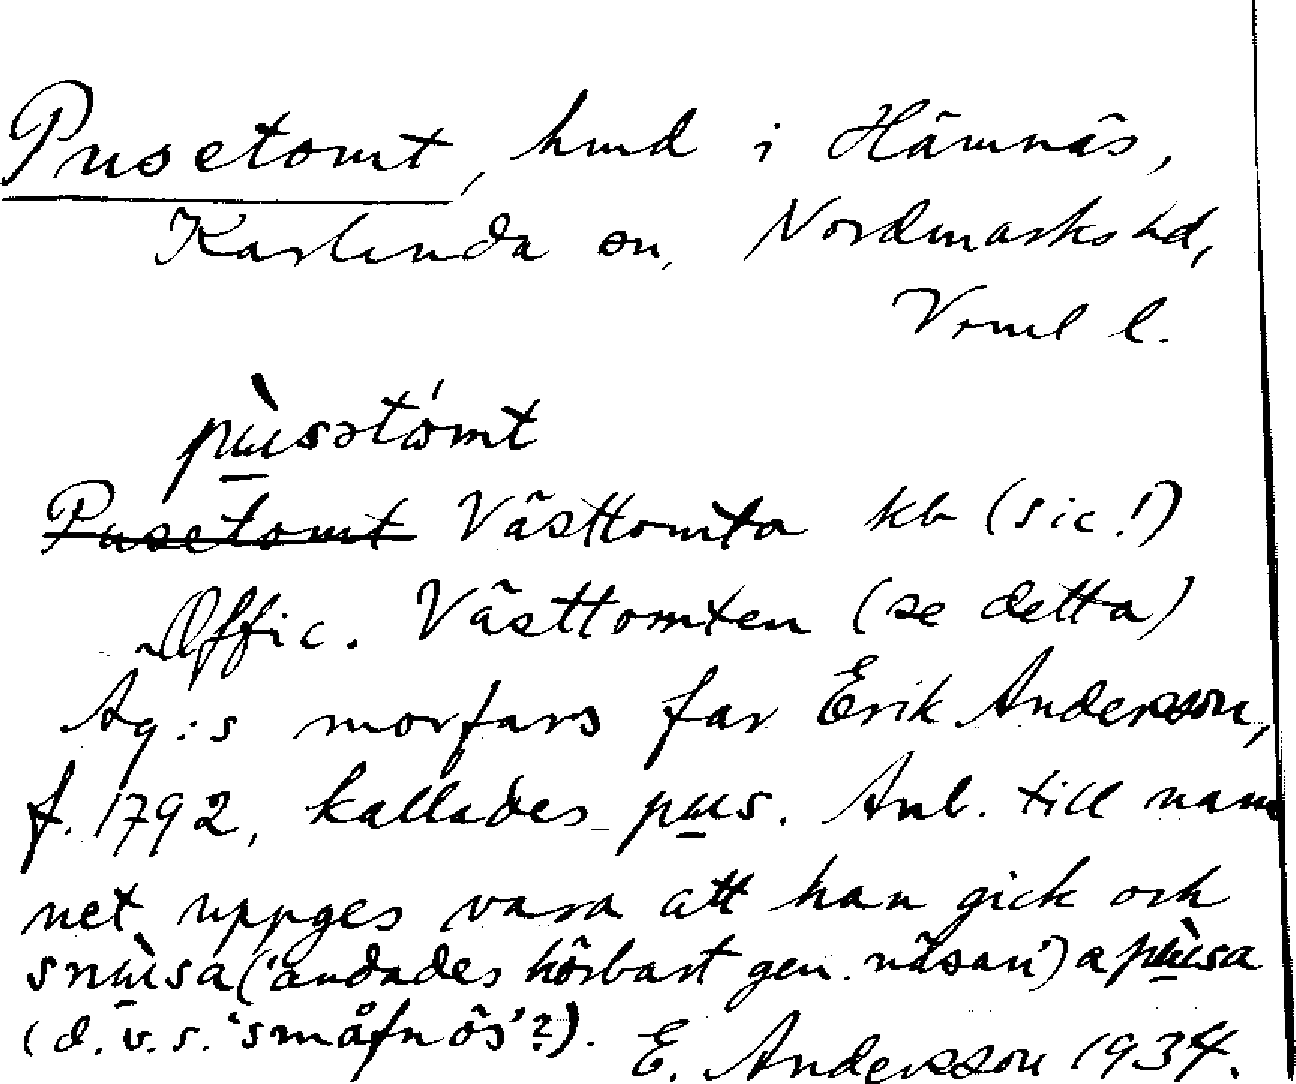 Pusetomt, hmd i Hämnäs,
Karlanda sn, Nordmarks hd,
Vrml l.
pùsətómt
Pusetomt Västtomta kb (sic!)
Offic. Västtomten (se detta)
Ag:s morfars far Erik Andersson,
f. 1792, kallades pus. Anl. till nam
net uppges vara att han gick och
snùsa ('andades hörbart gen. näsan') a pùsa
(d.v.s. 'småfnös'?). E. Andersson 1934.